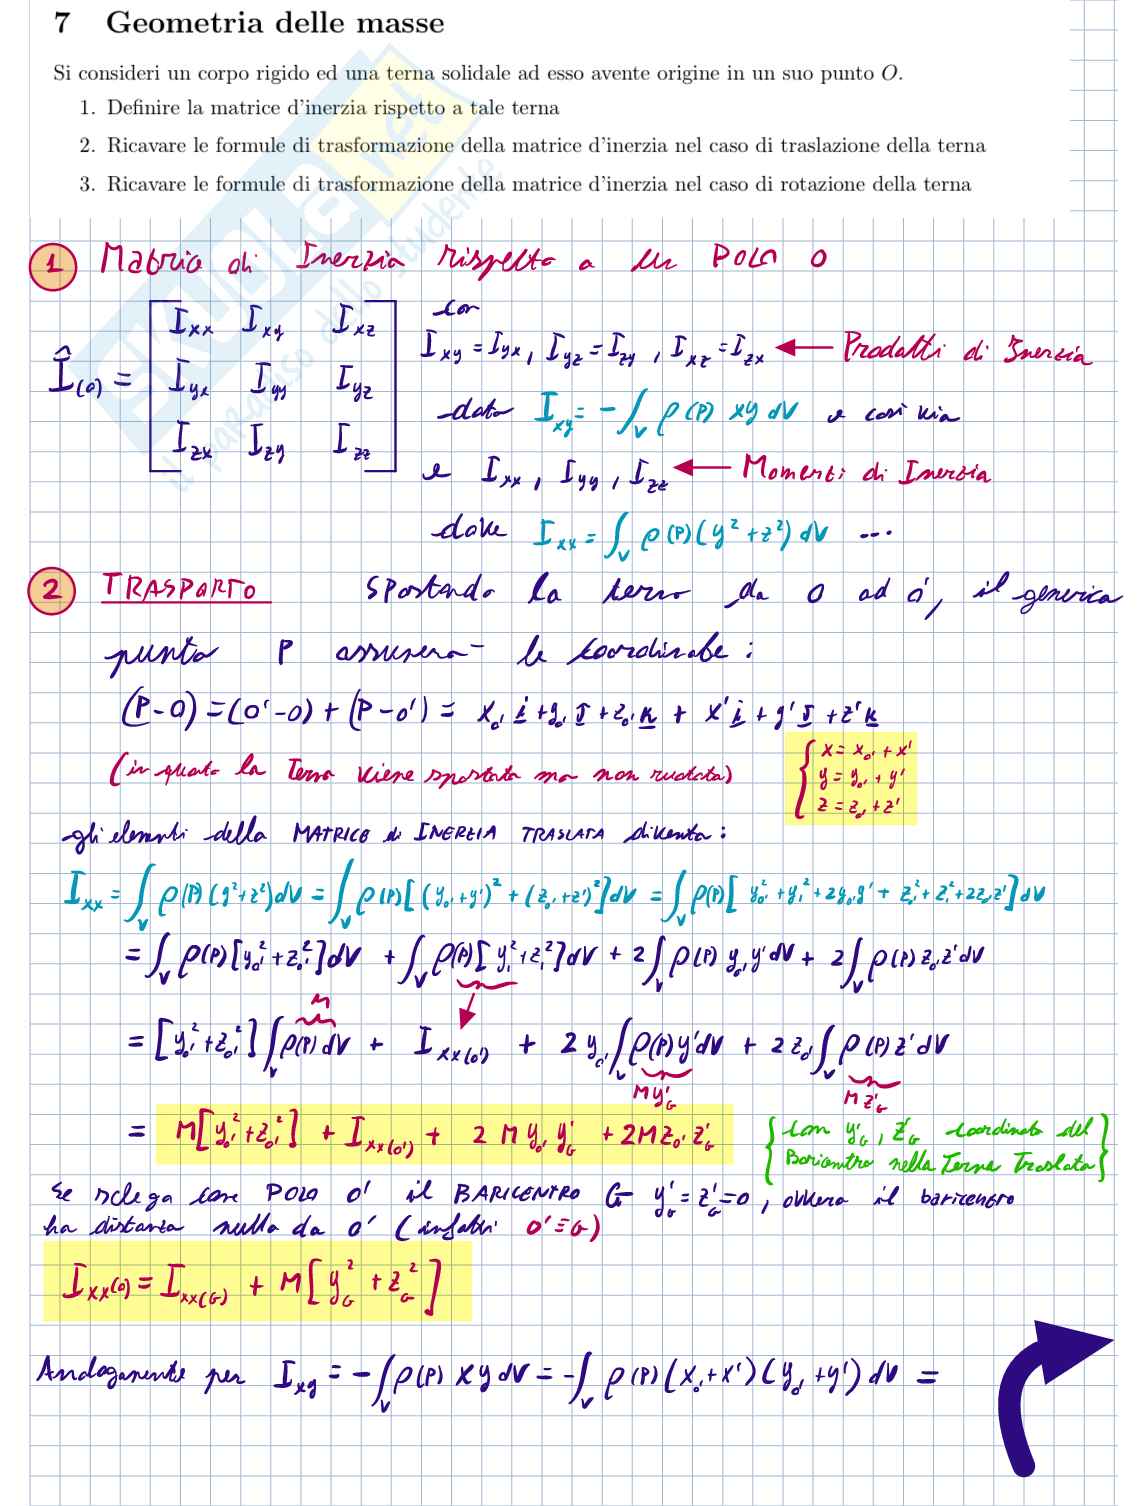 7 Geometria delle masse
Si consideri un corpo rigido ed una terna solidale ad esso avente origine in un suo punto O.
1. Definire la matrice d'inerzia rispetto a tale terna
2. Ricavare le formule di trasformazione della matrice d'inerzia nel caso di traslazione della terna
3. Ricavare le formule di trasformazione della matrice d'inerzia nel caso di rotazione della terna
1 Matrice di Inerzia rispetto a un POLO O
Î(o) = [ Ixx Ixy Ixz
Iyx Iyy Iyz
Izx Izy Izz ]
con
Ixy = Iyx, Iyz = Izy, Ixz = Izx ← Prodotti di Inerzia
dato Ixy = - ∫v ρ(P) xy dV e così via
e Ixx, Iyy, Izz ← Momenti di Inerzia
dove Ixx = ∫v ρ(P)(y² + z²) dV ...
2 TRASPORTO Spostando la terna da O ad O', il generico
punto P assumerà le coordinate:
(P-O) = (O'-O) + (P-O') = xo' i + yo' j + zo' k + x' i + y' j + z' k
(in quanto la Terna viene spostata ma non ruotata)
{ x = xo' + x'
y = yo' + y'
z = zo' + z'
gli elementi della MATRICE di INERZIA TRASLATA diventa:
Ixx = ∫v ρ(P)(y²+z²)dV = ∫v ρ(P)[(yo'+y')² + (zo'+z')²]dV = ∫v ρ(P)[yo'² + y'² + 2yo'y' + zo'² + z'² + 2zo'z']dV
= ∫v ρ(P)[yo'² + zo'²]dV + ∫v ρ(P)[y'² + z'²]dV + 2∫v ρ(P) yo'y'dV + 2∫v ρ(P) zo'z'dV
M
= [yo'² + zo'²] ∫v ρ(P)dV + Ixx(o') + 2 yo' ∫v ρ(P)y'dV + 2 zo' ∫v ρ(P)z'dV
My'G Mz'G
= M[yo'² + zo'²] + Ixx(o') + 2 M yo' y'G + 2M zo' z'G
{ con y'G, z'G coordinate del
Baricentro nella Terna Traslata }
Se scelgo come POLO O' il BARICENTRO G y'G = z'G = 0, ovvero il baricentro
ha distanza nulla da O' (infatti O' ≡ G)
Ixx(o) = Ixx(G) + M[yG² + zG²]
Analogamente per Ixy = -∫v ρ(P) xy dV = -∫v ρ(P)(xo' + x')(yo' + y') dV =